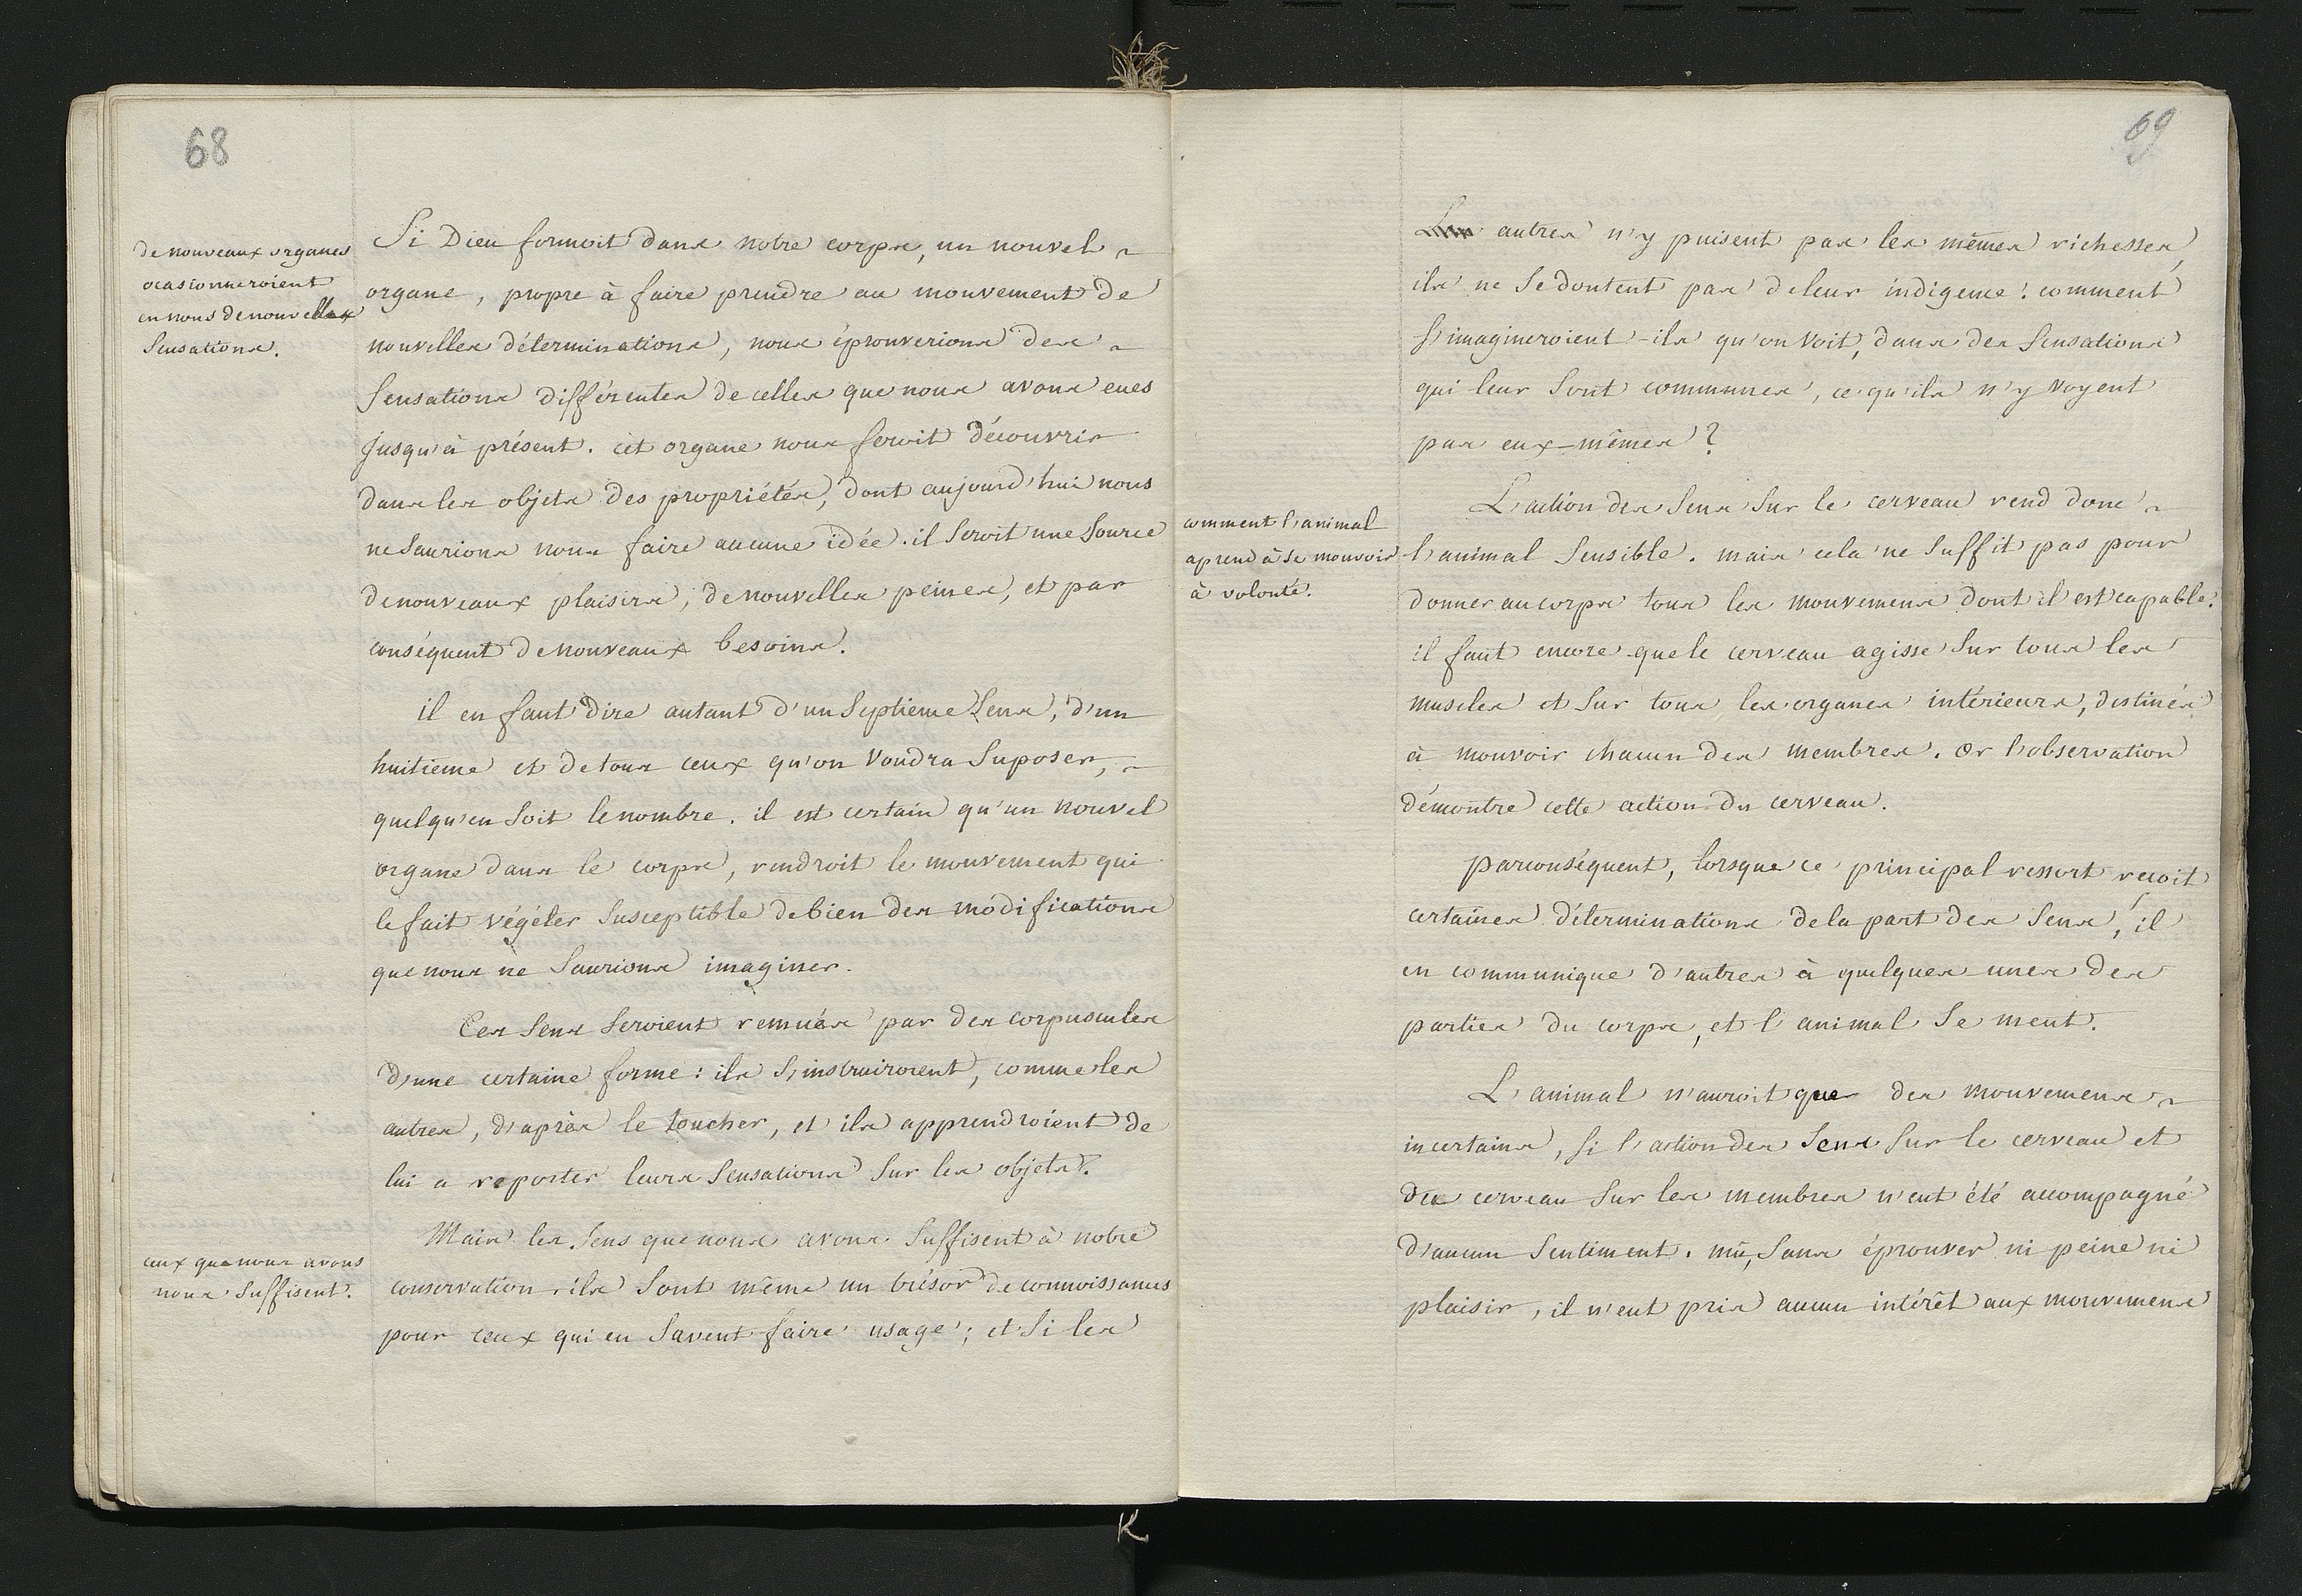 68
de nouveaux organes
ocasionneroient
en nous de nouvelles
Sensations.
Si Dieu formoit dans notre corps, un nouvel
organe, propre à faire prendre au mouvement de
nouvelles déterminations, nous éprouverions des
Sensations différentes de celles que nous avons eues
jusqu'à présent. cet organe nous feroit découvrir
dans les objets des propriétés, dont aujourd'hui nous
ne Saurions nous faire aucune idée. il Seroit une Source
de nouveaux plaisirs, de nouvelles peines, et par
conséquent de nouveaux besoins.
il en faut dire autant d'un Septieme Sens, d'un
huitieme et de tous ceux qu'on Voudra Suposer,
quelqu'en Soit le nombre. il est certain qu'un nouvel
organe dans le corps, rendroit le mouvement qui
le fait végéter Susceptible de bien des modifications
que nous ne Saurions imaginer.
Ces Sens Seroient remués par des corpuscules
d'une certaine forme : ils S'instruiroient, comme les
autres, d'après le toucher, et ils apprendroient de
lui a reporter leurs Sensations Sur les objets.
ceux que nous avons
nous Suffisent.
Mais les Sens que nous avons Suffisent à notre
conservation, ils Sont même un trésor de connoissances
pour ceux qui en Savent faire usage ; et Si les
69
autres n'y puisent pas les mêmes richesses,
ils ne Se doutent pas de leur indigence. comment
S'imagineroient-ils qu'on Voit, dans des Sensations
qui leur Sont communes, ce qu'ils n'y voyent
pas eux-mêmes ?
comment l'animal
aprend à Se mouvoir
à volonté.
L'action des Sens Sur le cerveau rend donc
l'animal Sensible. mais cela ne Suffit pas pour
donner au corps tous les mouvemens dont il est capable.
il faut encore que le cerveau agisse Sur tous les
muscles et Sur tous les organes intérieurs, destinés
à mouvoir chacun des membres. Or l'observation
démontre cette action du cerveau.
parconséquent, lorsque ce principal ressort reçoit
certaines déterminations de la part des Sens, il
en communique d'autres à quelques unes des
parties du corps, et l'animal Se meut.
L'animal n'auroit que des mouvemens
incertains, Si l'action des Sens Sur le cerveau et
du cerveau Sur les membres n'eut été accompagné
d'aucun Sentiment. mû, Sans éprouver ni peine ni
plaisir, il n'eut pris aucun intérêt aux mouvemens
K